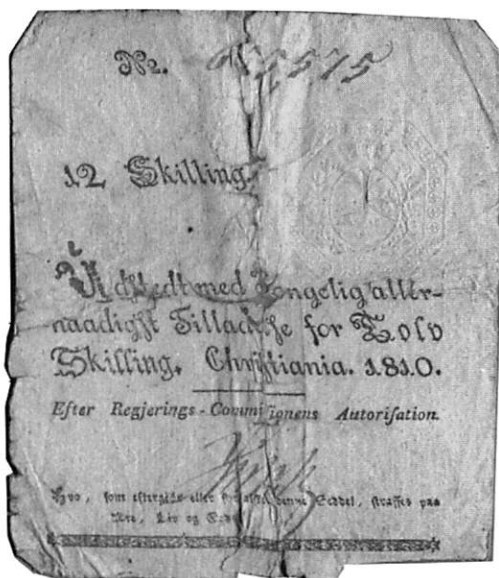 No.
12 Skilling.
Udstedt med Kongelig aller-
naadigst Tilladelse for Tolv
Skilling. Christiania. 1810.
Efter Regjerings-Commissionens Autorisation.
Hvo, som eftergiør eller denne Seddel, straffes paa
Ære, Liv og Gods